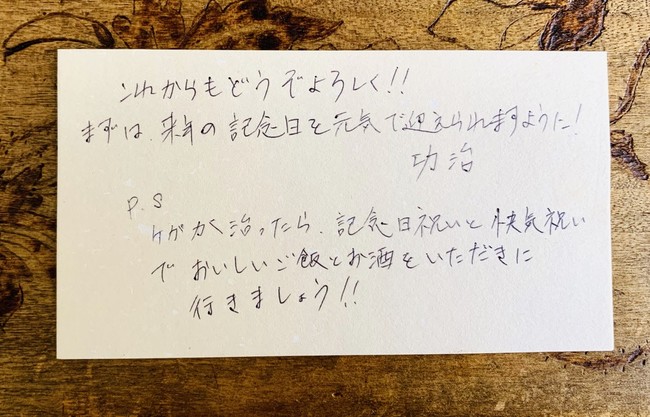 これからもどうぞよろしく!!
まずは、来年の記念日を元気で迎えられますように!
功治
P.S
ケガが治ったら、記念日祝いと快気祝い
でおいしいご飯とお酒をいただきに
行きましょう!!